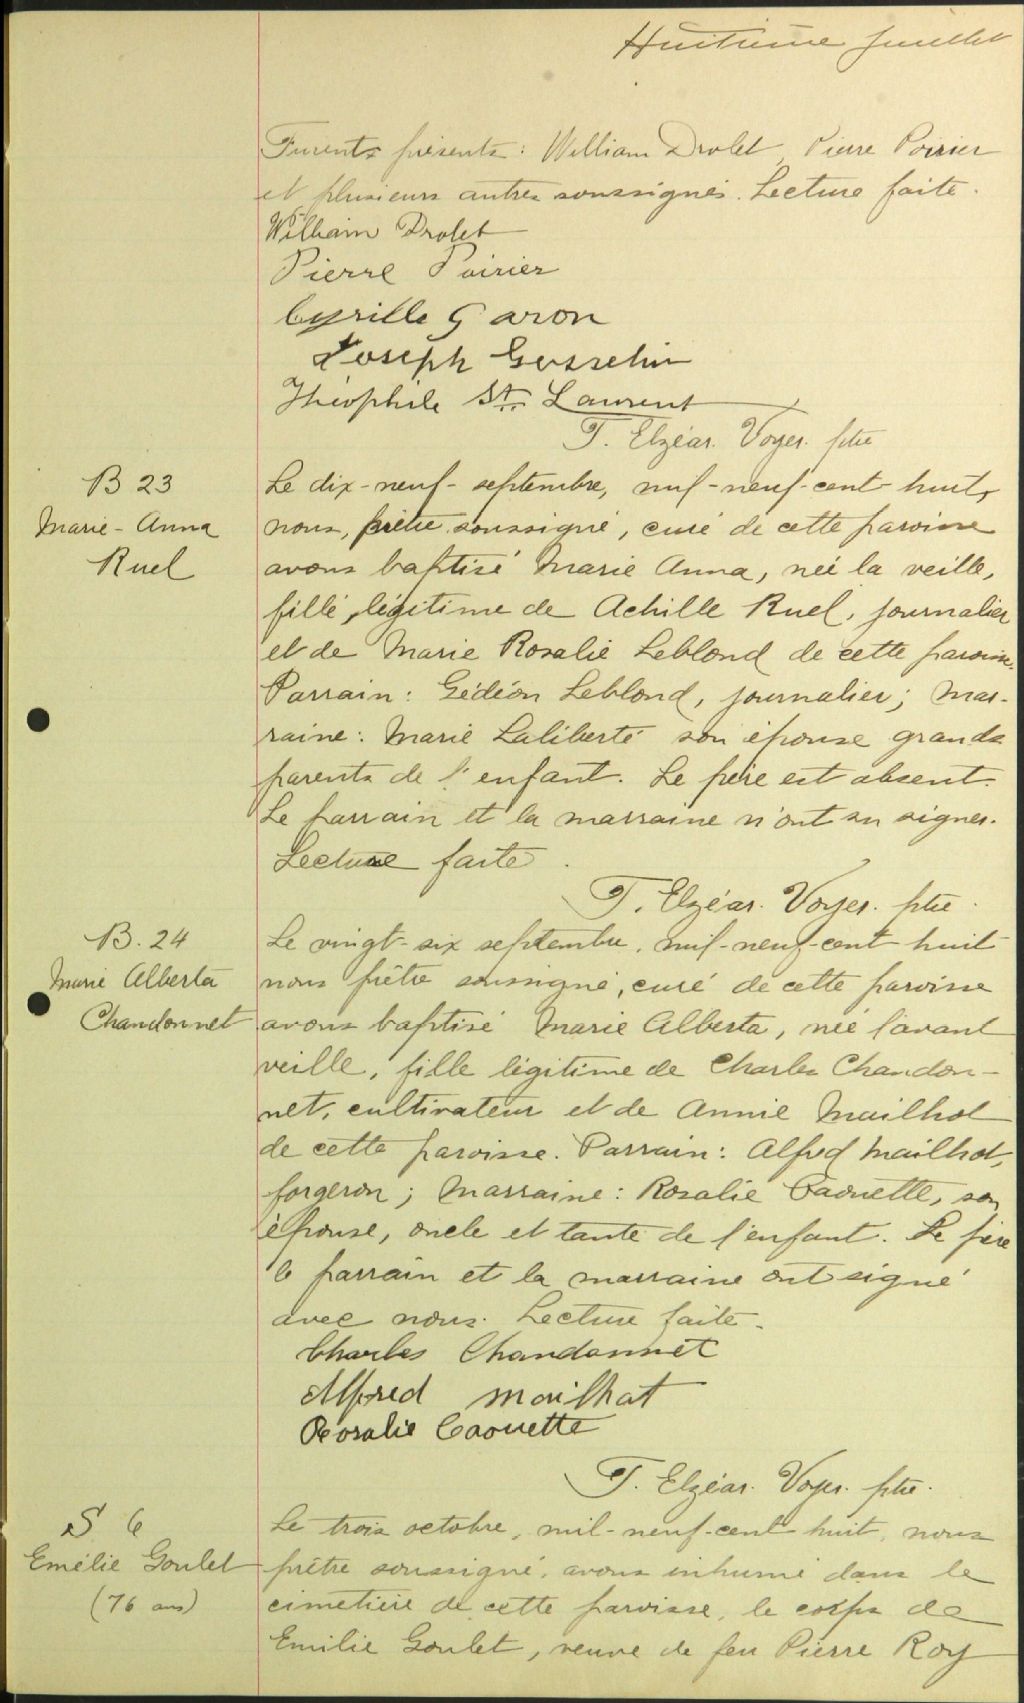 Huitième feuillet
Furent présents : William Drolet, Pierre Poirier
et plusieurs autres soussignés. Lecture faite.
William Drolet
Pierre Poirier
Cyrille Garon
Joseph Gosselin
Théophile St. Laurent
T. Elzéar. Voyer. ptre
B 23
Marie-Anna
Ruel
Le dix-neuf-septembre, mil-neuf-cent-huit,
nous, prêtre soussigné, curé de cette paroisse
avons baptisé Marie Anna, née la veille,
fille, légitime de Achille Ruel, journalier
et de Marie Rosalie Leblond de cette paroisse.
Parrain : Gédéon Leblond, journalier ; mar-
raine : Marie Laliberté son épouse grands
parents de l'enfant. Le père est absent.
Le parrain et la marraine n'ont su signer.
Lecture faite.
T. Elzéar. Voyer. ptre.
B. 24
Marie Alberta
Chandonnet
Le vingt-six septembre, mil-neuf-cent huit
nous prêtre soussigné, curé de cette paroisse
avons baptisé Marie Alberta, née l'avant
veille, fille légitime de Charles Chandon-
net, cultivateur et de Annie Mailhot
de cette paroisse. Parrain : Alfred Mailhot,
forgeron ; Marraine : Rosalie Caouette, son
épouse, oncle et tante de l'enfant. Le père
le parrain et la marraine ont signé
avec nous. Lecture faite.
Charles Chandonnet
Alfred Mailhat
Rosalie Caouette
T. Elzéar. Voyer. ptre.
S 6
Emélie Goulet
(76 ans)
Le trois octobre, mil-neuf-cent huit, nous
prêtre soussigné, avons inhumé dans le
cimetière de cette paroisse, le corps de
Emilie Goulet, veuve de feu Pierre Roy